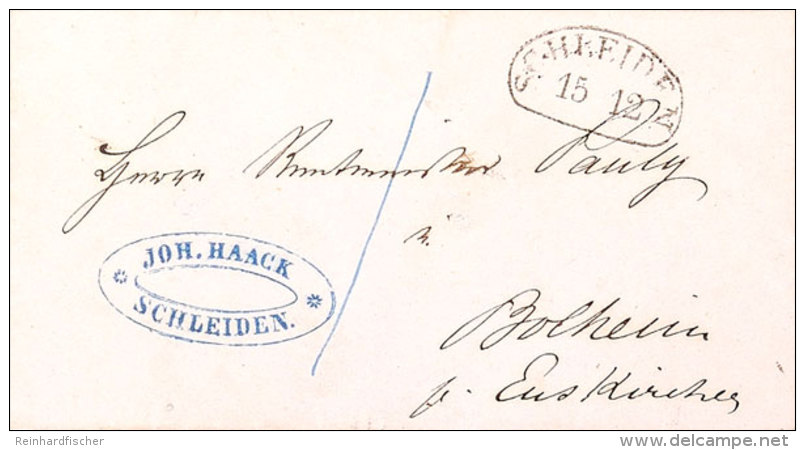 SCHLEIDEN
15 12
Herrn Rentmeister Pauly
JOH. HAACK
SCHLEIDEN.
Bolheim
p. Euskirchen
Reinhardfischer
www.delcampe.net